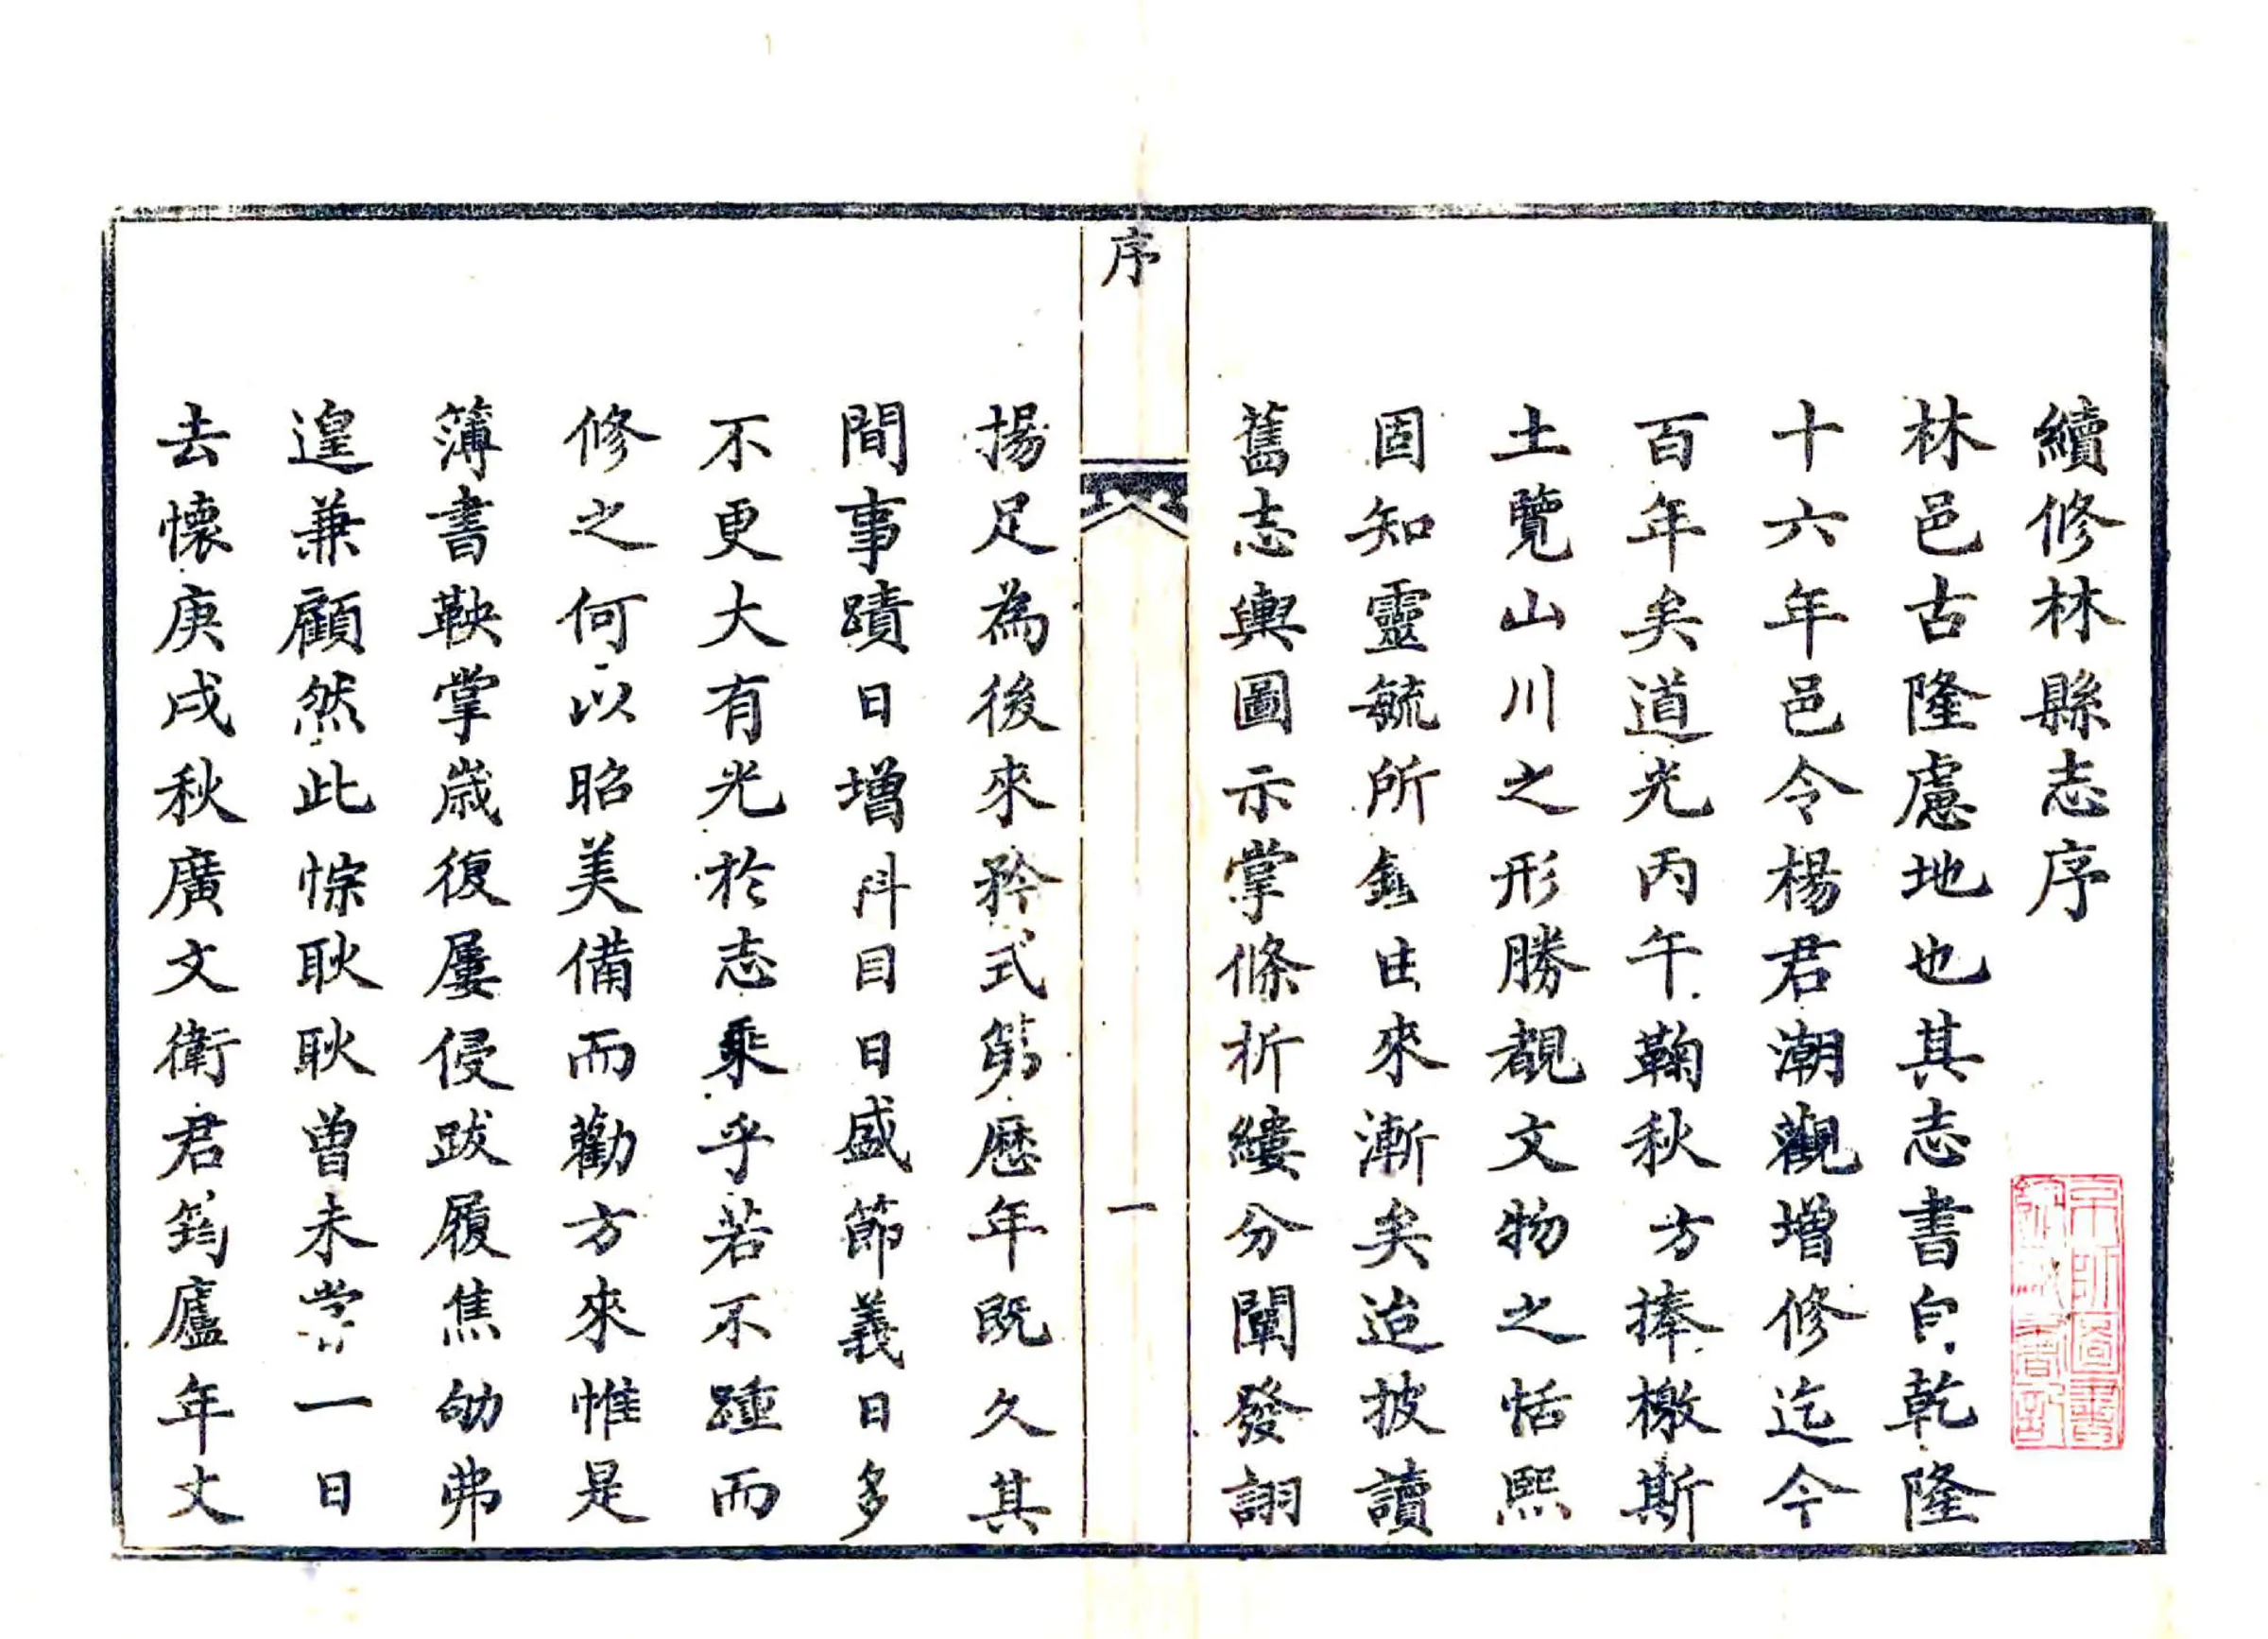 續修林縣志序
林邑古隆慮地也其志書自乾隆
十六年邑令楊君潮觀增修迄今
百年矣道光丙午鞠秋方捧檄斯
土覽山川之形勝覩文物之恬熙
固知靈毓所鍾由來漸矣迨披讀
舊志輿圖示掌條析縷分闡發詡
序
一
揚足為後來矜式第歷年既久其
間事蹟日增科目日盛節義日多
不更大有光於志乘乎若不踵而
修之何以昭美備而勸方來惟是
簿書鞅掌歲復屢侵跋履焦劬弗
遑兼顧然此悰耿耿曾未嘗一日
去懷庚戌秋廣文衛君筠廬年丈